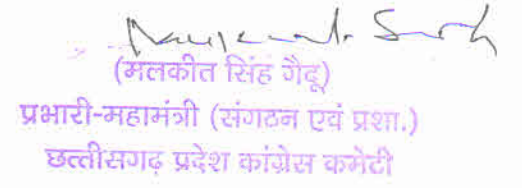 (मलकीत सिंह गैदू)
प्रभारी-महामंत्री (संगठन एवं प्रशा.)
छत्तीसगढ़ प्रदेश कांग्रेस कमेटी